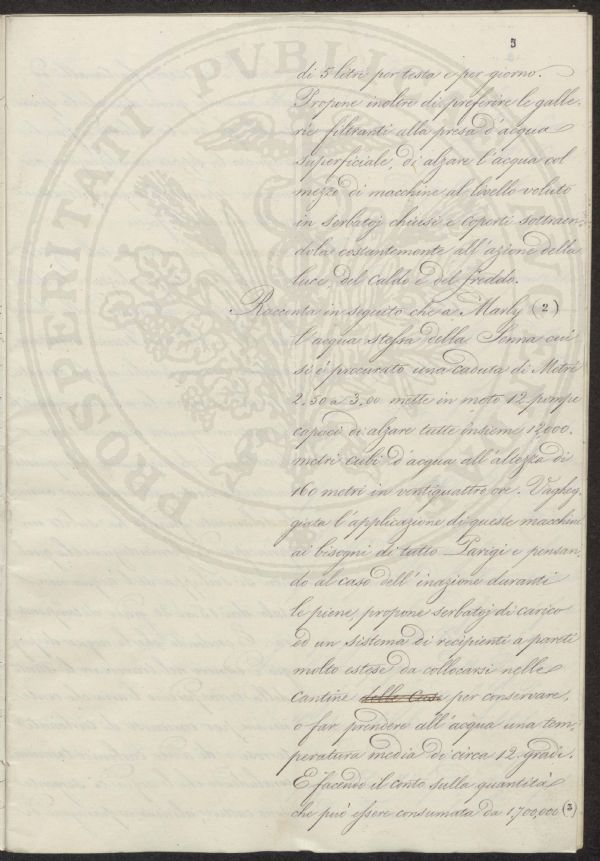 3
di 5 litri per testa e per giorno.
Propone inoltre di preferire le galle-
rie filtranti alla presa d'acqua
superficiale, di alzare l'acqua col
mezzo di macchine al livello voluto
in serbatoj chiusi e coperti sottraen-
dola costantemente all'azione della
luce, del caldo e del freddo.
Racconta in seguito che a Marly (2)
l'acqua stessa della Senna cui
si è procurato una caduta di Metri
2.50 a 3.00 mette in moto 12 pompe
capaci di alzare tutte insieme 12,000.
metri cubi d'acqua all'altezza di
160 metri in ventiquattro ore. Vagheg-
giata l'applicazione di queste macchine
ai bisogni di tutto Parigi e pensan-
do al caso dell'inazione duranti
le piene, propone serbatoj di carico
ed un sistema di recipienti a pareti
molto estese da collocarsi nelle
cantine delle case per conservare,
o far prendere all'acqua una tem-
peratura media di circa 12 gradi.
E facendo il conto sulla quantità
che può essere consumata da 1,700,000 (3)
PROSPERITATI PVBLICAE